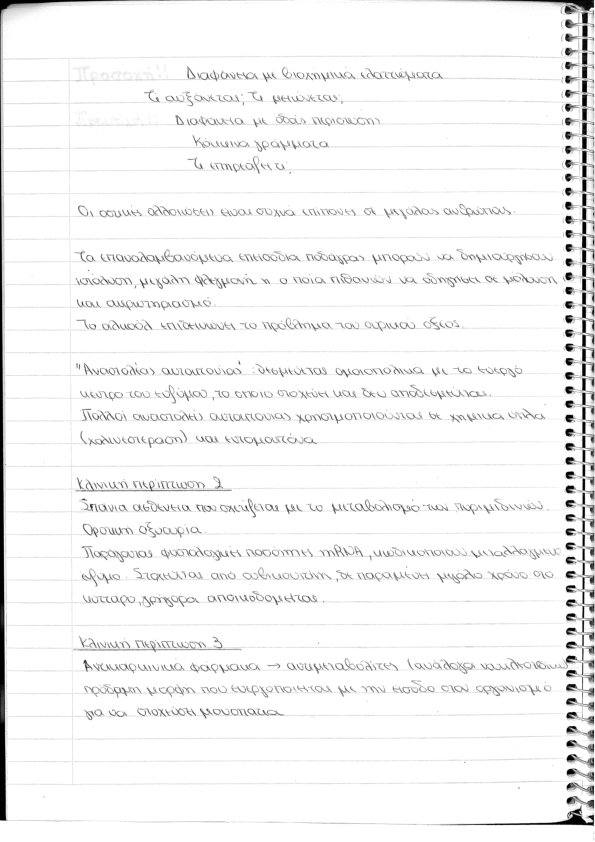 Διαφάνεια με βιοχημικά ελαττώματα
Τι αυξάνεται; Τι μειώνεται;
Διαφάνεια με οδούς περίσωσης
Κόκκινα γράμματα
Τι επηρεάζει τι;
Οι οστικές αλλοιώσεις είναι συχνά επίπονες σε μεγάλους ανθρώπους.
Τα επαναλαμβανόμενα επεισόδια ποδάγρας μπορούν να δημιουργήσουν
ιστόλυση, μεγάλη φλεγμονή η οποία πιθανών να οδηγήσει σε μόλυνση
και ακρωτηριασμό.
Το αλκοόλ επιδεινώνει το πρόβλημα του ουρικού οξέος.
"Αναστολέας αυτοκτονίας": δεσμεύεται ομοιοπολικά με το ενεργό
κέντρο του ενζύμου, το οποίο στοχεύει και δεν αποδεσμεύεται.
Πολλοί αναστολείς αυτοκτονίας χρησιμοποιούνται σε χημικά όπλα
(χολινεστεράση) και εντομοκτόνα
Κλινική περίπτωση 2
Σπάνια ασθένεια που σχετίζεται με το μεταβολισμό των πυριμιδινών.
Οροτική οξυουρία.
Παράγονται φυσιολογικές ποσότητες mRNA, κωδικοποιούν μεταλλαγμένο
ένζυμο. Στοχεύεται από ουβικουιτίνη, δε παραμένει μεγάλο χρόνο στο
κύτταρο, γρήγορα αποικοδομείται.
Κλινική περίπτωση 3
Αντικαρκινικά φάρμακα → αντιμεταβολίτες (ανάλογα νουκλεοτιδίων)
πρόδρομη μορφή που ενεργοποιείται με την είσοδο στον οργανισμό
για να στοχεύσει μονοπάτια